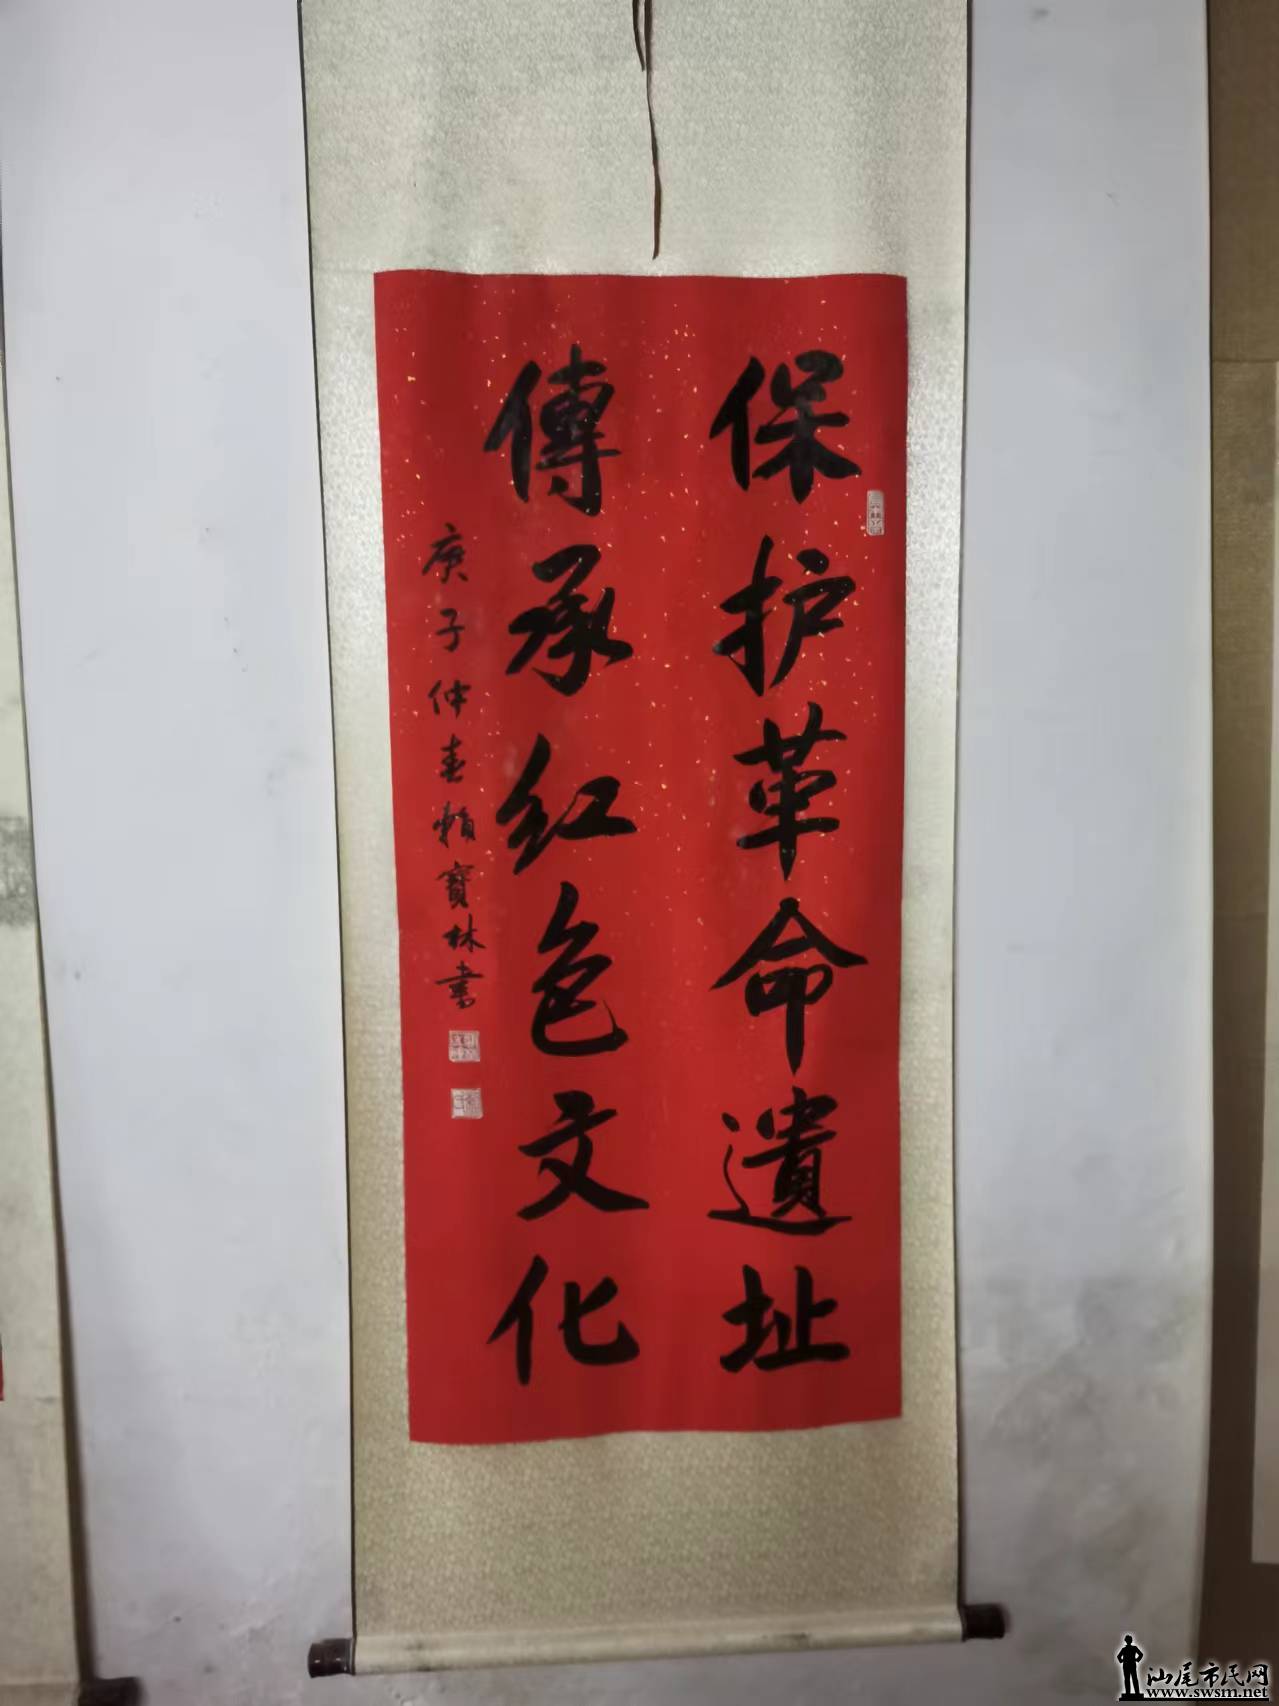 保护革命遺址
傳承红色文化
庚子仲春賴寶林書
汕尾市民网
www.swsm.net